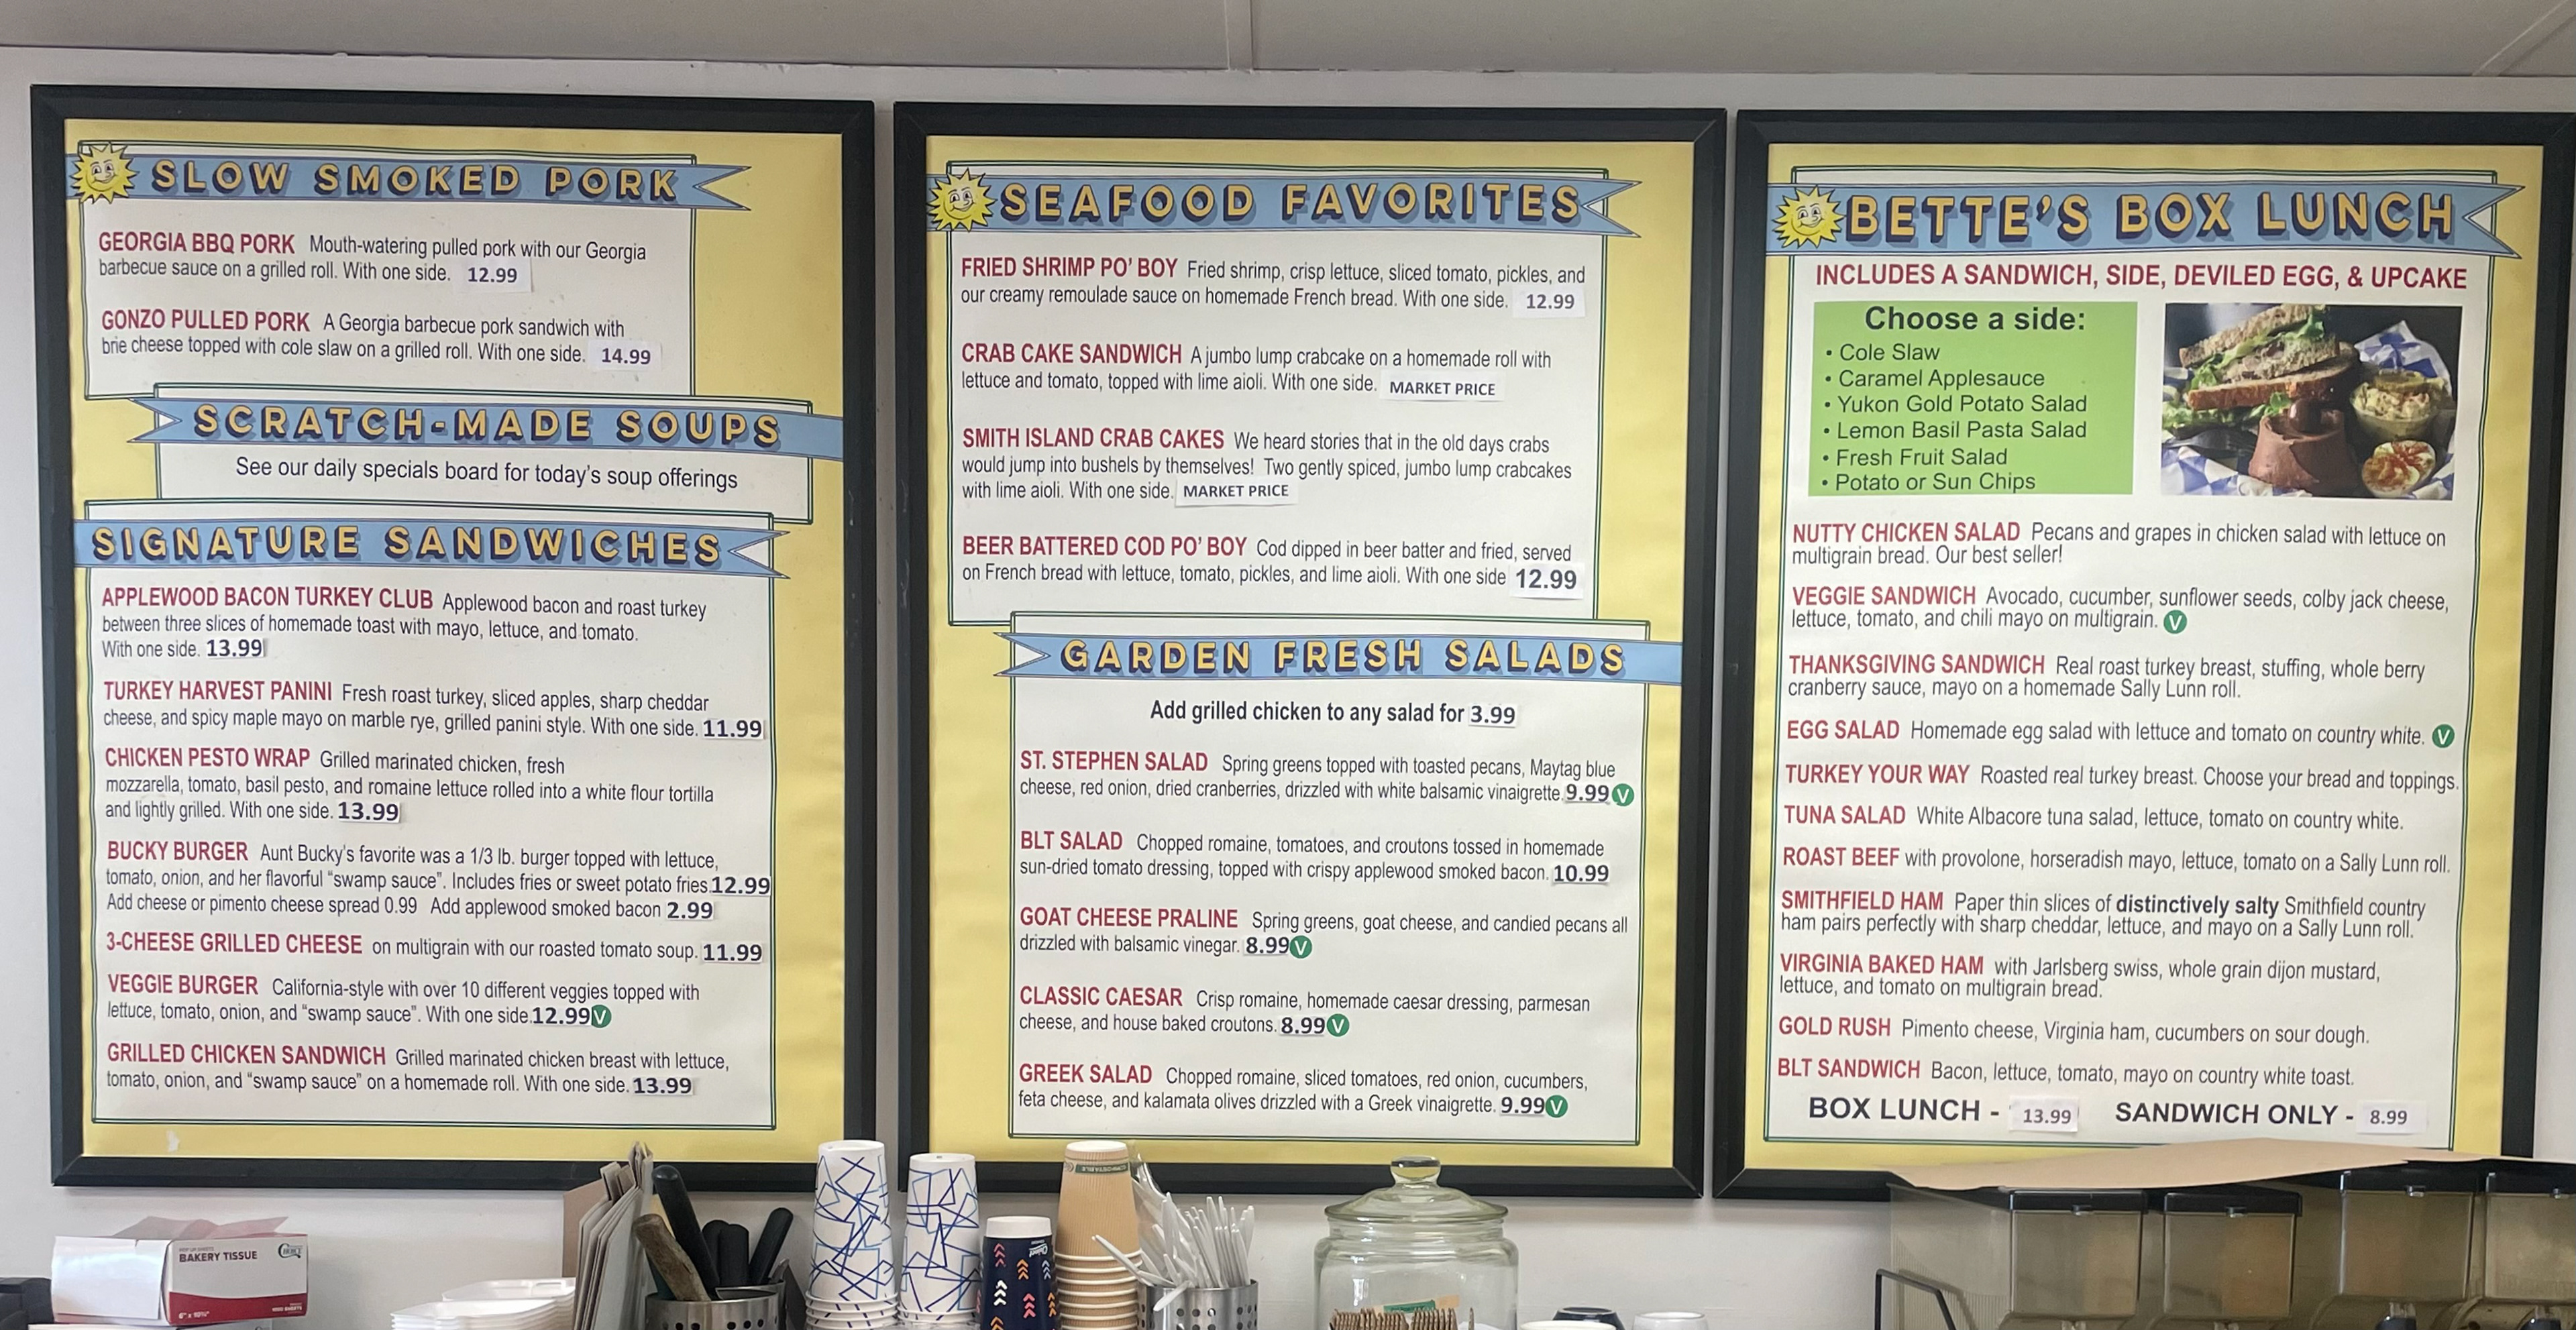 SLOW SMOKED PORK
GEORGIA BBQ PORK Mouth-watering pulled pork with our Georgia
barbecue sauce on a grilled roll. With one side. 12.99
GONZO PULLED PORK A Georgia barbecue pork sandwich with
brie cheese topped with cole slaw on a grilled roll. With one side. 14.99
SCRATCH-MADE SOUPS
See our daily specials board for today's soup offerings
SIGNATURE SANDWICHES
APPLEWOOD BACON TURKEY CLUB Applewood bacon and roast turkey
between three slices of homemade toast with mayo, lettuce, and tomato.
With one side. 13.99
TURKEY HARVEST PANINI Fresh roast turkey, sliced apples, sharp cheddar
cheese, and spicy maple mayo on marble rye, grilled panini style. With one side. 11.99
CHICKEN PESTO WRAP Grilled marinated chicken, fresh
mozzarella, tomato, basil pesto, and romaine lettuce rolled into a white flour tortilla
and lightly grilled. With one side. 13.99
BUCKY BURGER Aunt Bucky's favorite was a 1/3 lb. burger topped with lettuce,
tomato, onion, and her flavorful "swamp sauce". Includes fries or sweet potato fries. 12.99
Add cheese or pimento cheese spread 0.99 Add applewood smoked bacon 2.99
3-CHEESE GRILLED CHEESE on multigrain with our roasted tomato soup. 11.99
VEGGIE BURGER California-style with over 10 different veggies topped with
lettuce, tomato, onion, and "swamp sauce". With one side. 12.99 V
GRILLED CHICKEN SANDWICH Grilled marinated chicken breast with lettuce,
tomato, onion, and "swamp sauce" on a homemade roll. With one side. 13.99
SEAFOOD FAVORITES
FRIED SHRIMP PO' BOY Fried shrimp, crisp lettuce, sliced tomato, pickles, and
our creamy remoulade sauce on homemade French bread. With one side. 12.99
CRAB CAKE SANDWICH A jumbo lump crabcake on a homemade roll with
lettuce and tomato, topped with lime aioli. With one side. MARKET PRICE
SMITH ISLAND CRAB CAKES We heard stories that in the old days crabs
would jump into bushels by themselves! Two gently spiced, jumbo lump crabcakes
with lime aioli. With one side. MARKET PRICE
BEER BATTERED COD PO' BOY Cod dipped in beer batter and fried, served
on French bread with lettuce, tomato, pickles, and lime aioli. With one side 12.99
GARDEN FRESH SALADS
Add grilled chicken to any salad for 3.99
ST. STEPHEN SALAD Spring greens topped with toasted pecans, Maytag blue
cheese, red onion, dried cranberries, drizzled with white balsamic vinaigrette. 9.99 V
BLT SALAD Chopped romaine, tomatoes, and croutons tossed in homemade
sun-dried tomato dressing, topped with crispy applewood smoked bacon. 10.99
GOAT CHEESE PRALINE Spring greens, goat cheese, and candied pecans all
drizzled with balsamic vinegar. 8.99 V
CLASSIC CAESAR Crisp romaine, homemade caesar dressing, parmesan
cheese, and house baked croutons. 8.99 V
GREEK SALAD Chopped romaine, sliced tomatoes, red onion, cucumbers,
feta cheese, and kalamata olives drizzled with a Greek vinaigrette. 9.99 V
BETTE'S BOX LUNCH
INCLUDES A SANDWICH, SIDE, DEVILED EGG, & UPCAKE
Choose a side:
• Cole Slaw
• Caramel Applesauce
• Yukon Gold Potato Salad
• Lemon Basil Pasta Salad
• Fresh Fruit Salad
• Potato or Sun Chips
NUTTY CHICKEN SALAD Pecans and grapes in chicken salad with lettuce on
multigrain bread. Our best seller!
VEGGIE SANDWICH Avocado, cucumber, sunflower seeds, colby jack cheese,
lettuce, tomato, and chili mayo on multigrain. V
THANKSGIVING SANDWICH Real roast turkey breast, stuffing, whole berry
cranberry sauce, mayo on a homemade Sally Lunn roll.
EGG SALAD Homemade egg salad with lettuce and tomato on country white. V
TURKEY YOUR WAY Roasted real turkey breast. Choose your bread and toppings.
TUNA SALAD White Albacore tuna salad, lettuce, tomato on country white.
ROAST BEEF with provolone, horseradish mayo, lettuce, tomato on a Sally Lunn roll.
SMITHFIELD HAM Paper thin slices of distinctively salty Smithfield country
ham pairs perfectly with sharp cheddar, lettuce, and mayo on a Sally Lunn roll.
VIRGINIA BAKED HAM with Jarlsberg swiss, whole grain dijon mustard,
lettuce, and tomato on multigrain bread.
GOLD RUSH Pimento cheese, Virginia ham, cucumbers on sour dough.
BLT SANDWICH Bacon, lettuce, tomato, mayo on country white toast.
BOX LUNCH - 13.99 SANDWICH ONLY - 8.99
BAKERY TISSUE